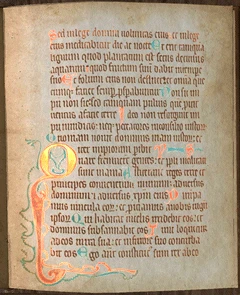 Sed in lege domini voluntas eius et in lege
eius meditabitur die ac nocte Et erit tamquam
lignum quod plantatum est secus decursus
aquarum quod fructum suum dabit in tempore
suo Et folium eius non defluet et omnia que
faciet semper Non sic im
pii non sic sed tamquam pulvis quem proicit
ventus a facie terre Ideo non resurgunt im
pii in iudicio neqz peccatores in consilio iustorum
Quoniam novit dominus viam iustorum et
iter impiorum peribit
Quare fremuerunt gentes et populi meditati
sunt inania Astiterunt reges terre et
principes convenerunt in unum adversus
dominum et adversus xpm eius Dirumpa
mus vincula eorum et proiciamus a nobis iugum
ipsorum Qui habitat in celis irridebit eos et
dominus subsannabit eos Tunc loquetur
ad eos in ira sua et in furore suo conturba
bit eos Ego aut constitutus sum rex ab eo